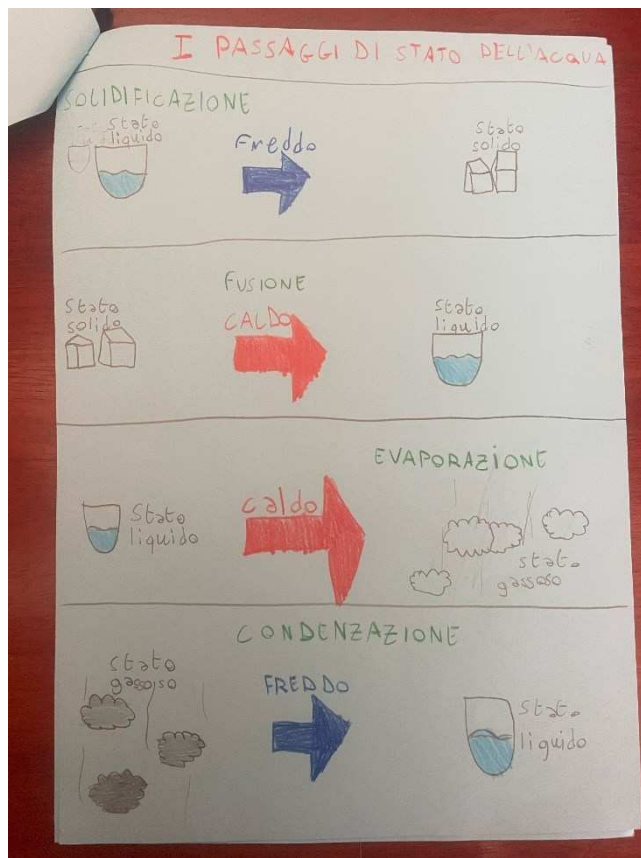 I PASSAGGI DI STATO DELL'ACQUA
SOLIDIFICAZIONE
Stato
liquido
Freddo
Stato
solido
FUSIONE
Stato
solido
CALDO
Stato
liquido
EVAPORAZIONE
Stato
liquido
caldo
stato
gassoso
CONDENZAZIONE
Stato
gassoiso
FREDDO
Stato
liquido